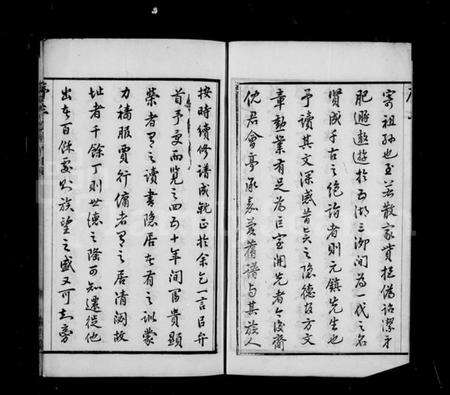 寄祖孫也至若散家貲
肥遯遨遊於五湖三泖間為一代之名
賢成千古之絕詣者則元鎮先生也
予讀其文深感昔賢之隱德文
章勳業有足為巨室開先者今後裔
君會亭承嘉舊譜與其族人
按時續修譜成就正於余乞一言以弁
首予受而覽之四五十年間富貴顯
榮者有之讀書隱居者有之訓蒙
力穡服賈行傭者有之居清故
址者千餘丁則世德之隆可知遷徙他
出者百餘處則族望之盛又可知旁